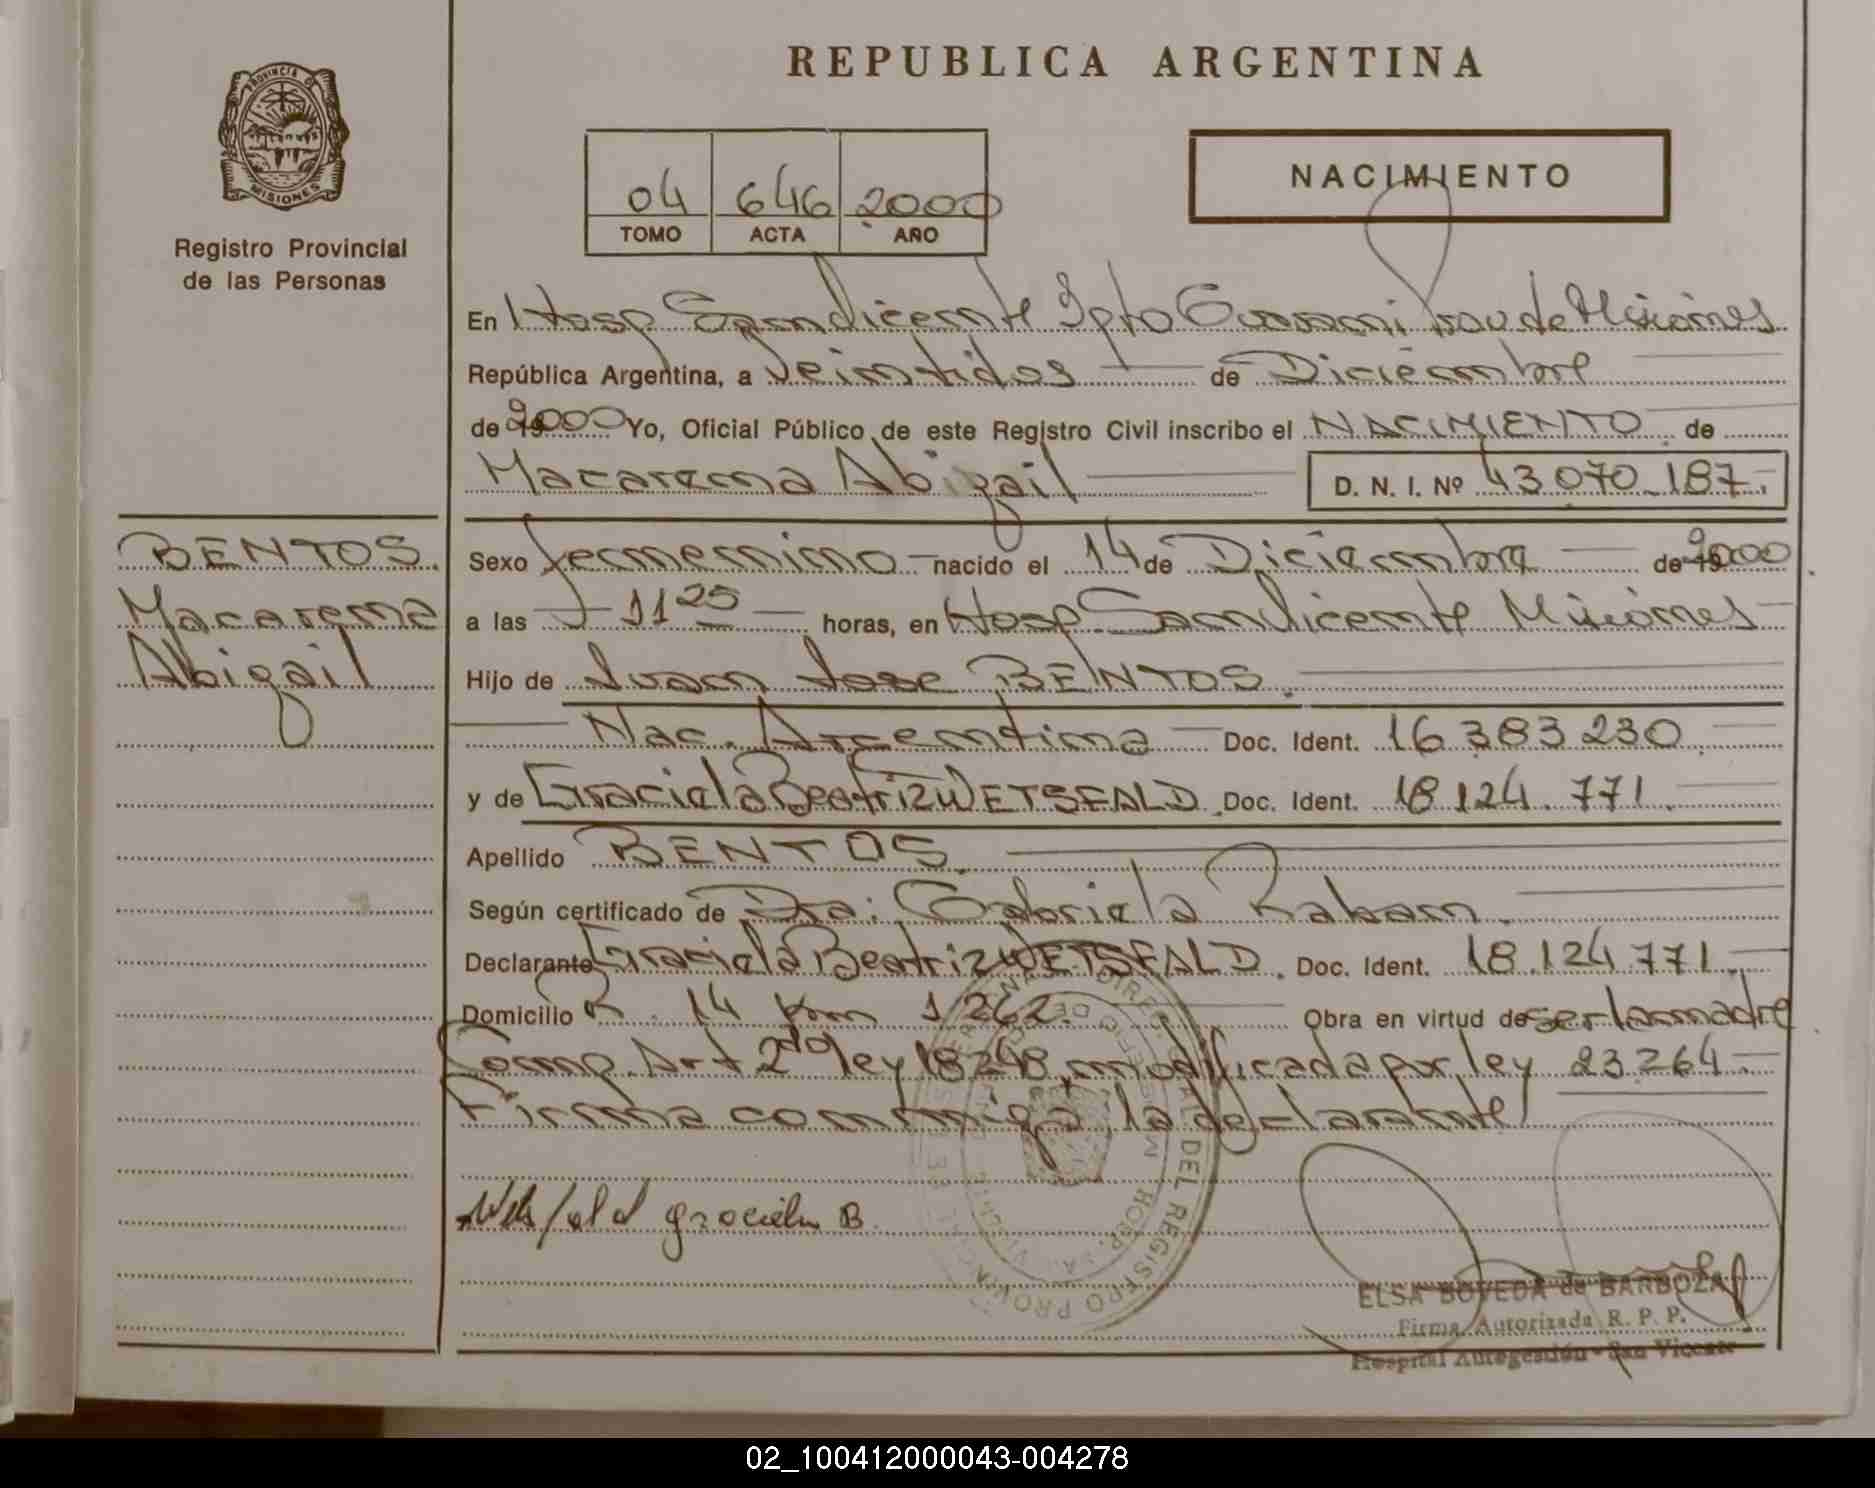 REPUBLICA ARGENTINA
PROVINCIA DE
MISIONES
Registro Provincial
de las Personas
04 646 2000
TOMO ACTA AÑO
NACIMIENTO
En Hosp San Vicente Dpto Guarani Prov de Misiones
República Argentina, a Veintidos de Diciembre
de 2000 Yo, Oficial Público de este Registro Civil inscribo el NACIMIENTO de
Macarena Abigail D. N. I. Nº 43.070.187.
BENTOS
Macarena
Abigail
Sexo femenino nacido el 14 de Diciembre de 2000
a las 11 25 horas, en Hosp San Vicente Misiones
Hijo de Juan Jose BENTOS.
Nac. Argentina Doc. Ident. 16.383.230.
y de Graciela Beatriz WETSFALD. Doc. Ident. 18.124.771.
Apellido BENTOS.
Según certificado de Dra: Gabriela Raban.
Declarante Graciela Beatriz WETSFALD. Doc. Ident. 18.124.771.
Domicilio R. 14 Km 1.262. Obra en virtud de ser la madre
Comp. Art 2do ley 18248, modificada por ley 23.264.
Firma conmigo la declarante
graciela B.
ELSA BOVEDA de BARBOZA
Firma Autorizada R. P. P.
Hospital Autogestión - San Vicente
02_100412000043-004278